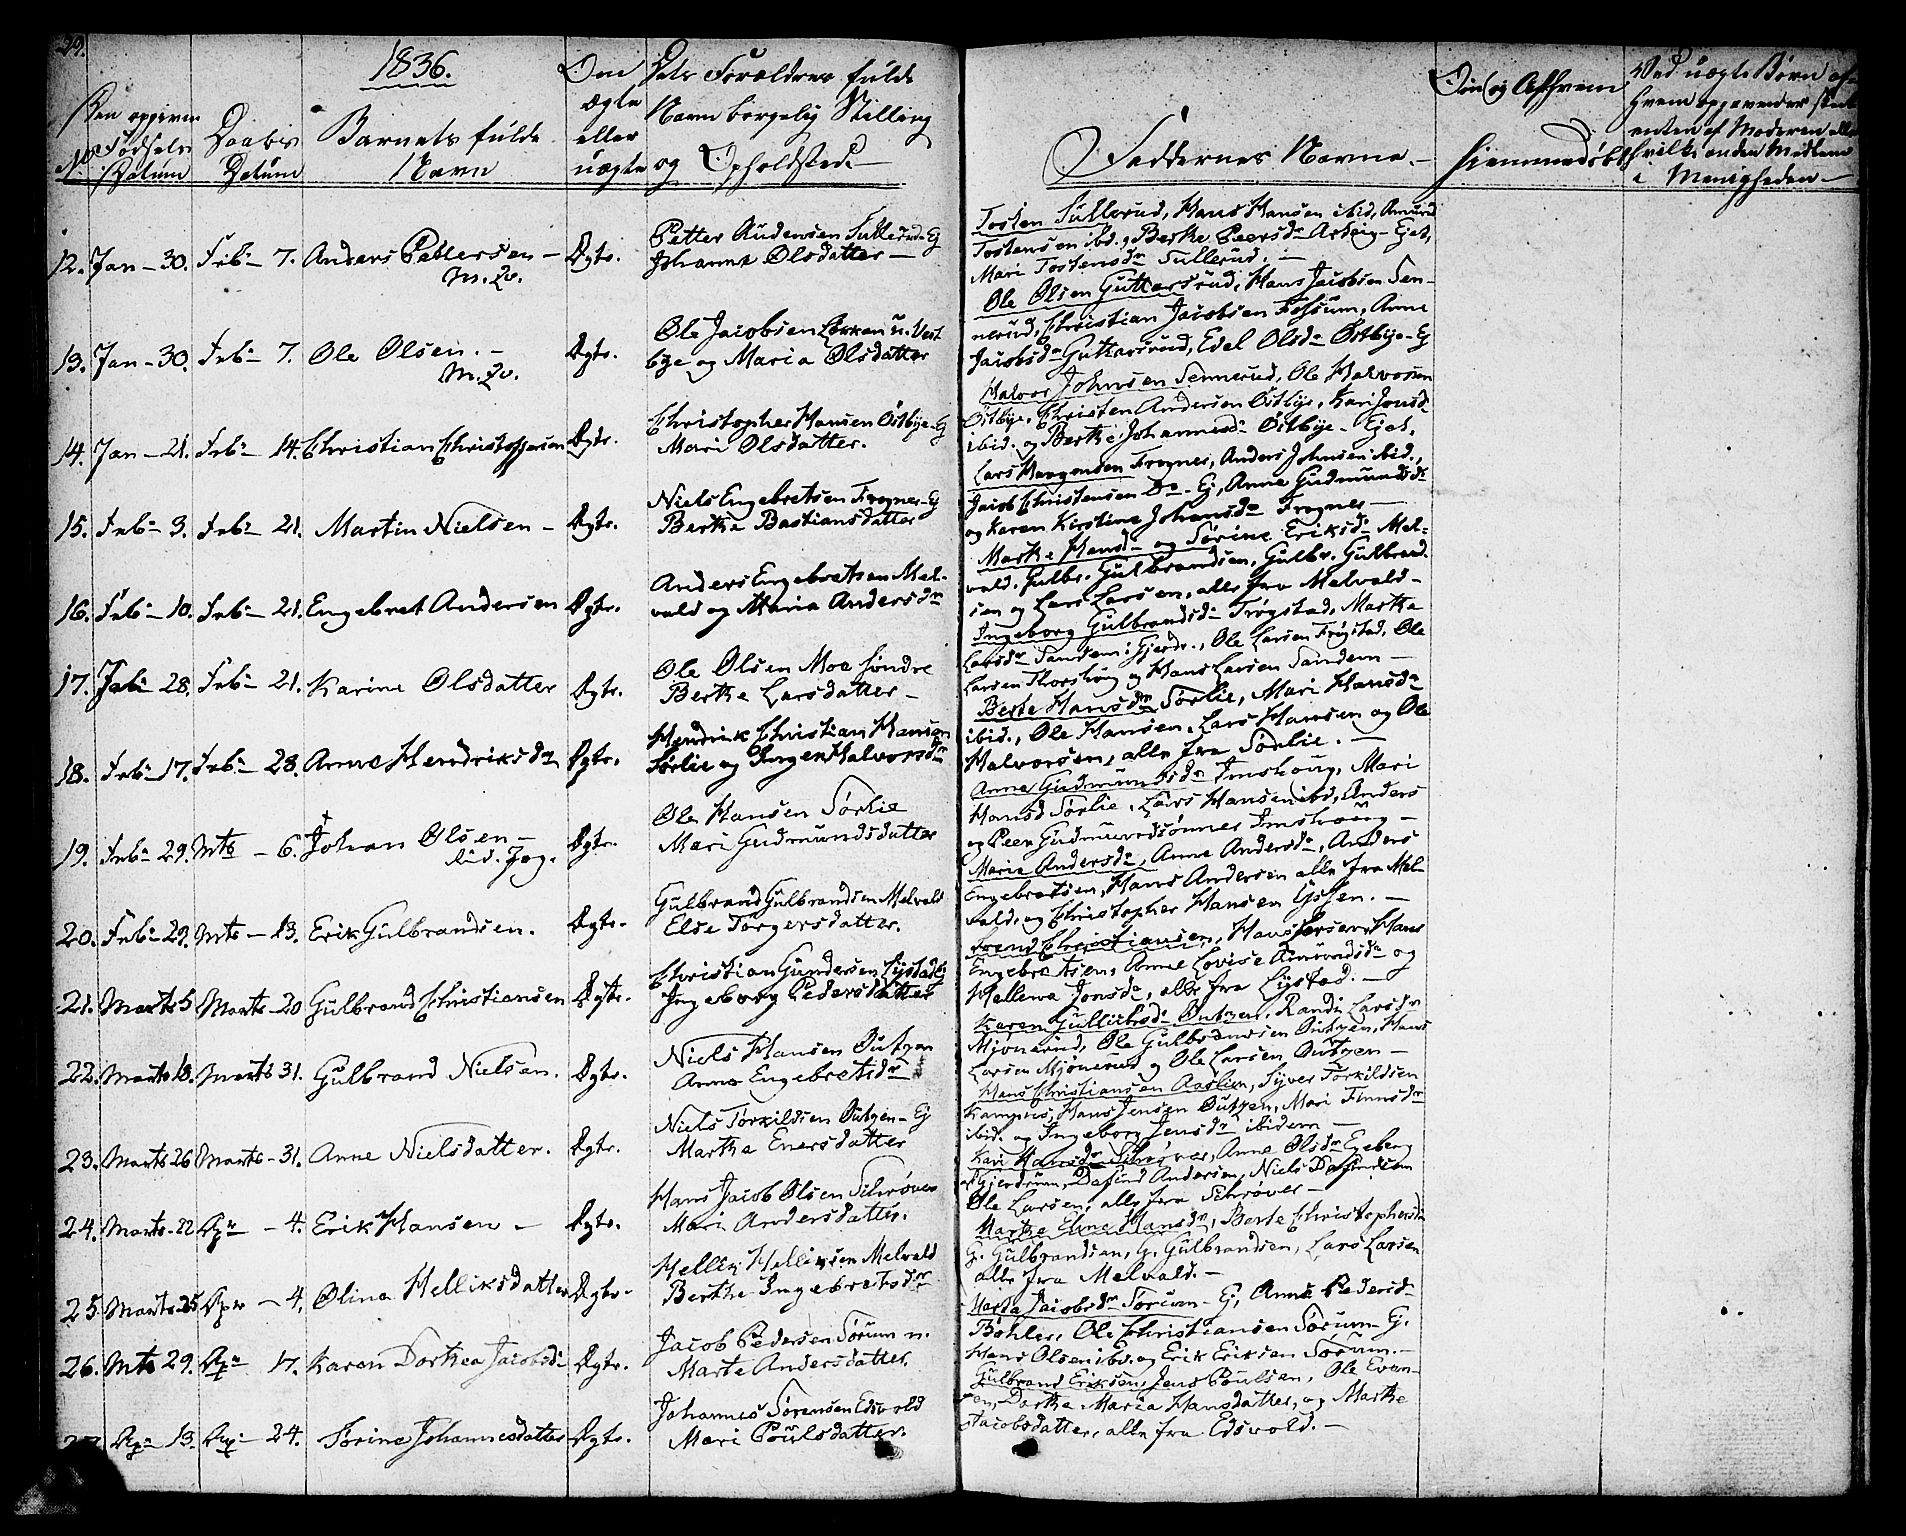 29.
1836.
Den opgivne Fødsels Datum
No
Daabs Datum
Barnets fulde Navn
Om ægte eller uægte
Dets Forældres fulde Navn borgelig Stilling og Opholdsted.
Faddernes Navne.
Om og af hvem hjemmedøbt
Ved uægte Børn af hvem opgivender skeet enten af Moderen eller hvilke anden Medlem i Menigheden
12. Jan - 30. Feb - 7. Anders Pettersen - M. Qv. Ægte. Petter Audensen Sullerud - Ej
Johanne Olsdatter -
Tosten Sullerud, Hans Hansen ibid, Amund
Tostensen ibd., Berthe Peersdr - Ejet,
Mari Tostensdr Sullerud. -
13. Jan - 30. Feb - 7. Ole Olsen. - M. Qv. Ægte. Ole Jacobsen u. Vest
bye og Maria Olsdatter
Ole Olsen Guttersrud, Hans Jacobsen Sen-
nerud, Christian Jacobsen Fossum, Anne
Jacobsdr Guttersrud, Edel Olsdr Østbye - Ej
14. Jan - 21. Feb - 14. Christian Christophersen Ægte. Christopher Hansen Østbye - Ej
Mari Olsdatter.
Halvor Johnsen Sennerud, Ole Halvorsen
Østbye, Christen Andersen Østbye, Kari Jonsdr
ibid. og Berthe Johannesdr Østbye - Ejet.
15. Feb - 3. Feb - 21. Martin Nielsen - Ægte. Niels Engebretsen Frogner - Ej
Berthe Bastiansdatter
Lars Mogensen Frogner, Anders Johnsen ibid.,
Jacob Christensen Do - Ej, Anne Gudmundsdr
og Karen Kirstine Johansdr Frogner -
16. Feb - 10. Feb - 21. Engebret Andersen Ægte. Anders Engebretsen Mel-
vald og Maria Andersdr
Marthe Hansdr og Sørine Eriksdr Mel-
vald. Gulbr. Gulbrandsen, Gulbr. Gulbrand-
sen og Lars Larsen, alle fra Melvald -
17. Feb 28. Feb - 21. Karine Olsdatter Ægte. Ole Olsen Moe søndre
Berthe Larsdatter -
Ingeborg Gulbrandsdr Frøgstad, Marthe
Larsdr Sandem i Gjerdr., Ole Larsen Frøgstad, Ole
Larsen Thorshoug og Hans Larsen Sandem -
18. Feb - 17. Feb - 28. Anne Hendriksdr Ægte. Hendrik Christian Hansen
Sørlie og Inger Halvorsdr
Berte Hansdr Sørlie, Mari Hansdr
ibid., Ole Hansen, Lars Hansen og Ole
Halvorsen, alle fra Sørlie. -
19. Feb - 29. Mts - 6. Johan Olsen - Ægte. Ole Hansen Sørlie
Mari Gudmundsdatter
Anne Gudmundsdr Imshoug, Mari
Hansd Sørlie, Lars Hansen ibd, Anders
og Peer Gudmundsønner Imshoug -
20. Feb - 29. Mts - 13. Erik Gulbrandsen. Ægte. Gulbrand Gulbrandsen Melvald
Else Torgersdatter.
Maria Andersdr, Anne Andersdr, Anders
Engebretsen, Hans Andersen alle fra Mel-
vald, og Christopher Hansen -
21. Marts 5 Marts - 20 Gulbrand Christiansen Ægte. Christian Gundersen Lystad Ej
Ingeborg Pedersdatter
Christiansen, Hans Hans
Engebretsen, Anne Lovise Amundsdr og
Hellene Jonsdr, alle fra Lystad. -
22. Marts 18. Marts 31. Gulbrand Nielsen. Ægte. Niels Hansen Outzen
Anne Engebretsdr
Karen Gullichsdr Outzen, Randi Larsdr
Mjønerud, Ole Gulbrandsen Outzen, Hans
Larsen Mjønerud og Ole Larsen Outzen -
23. Marts 26 Marts - 31. Anne Nielsdatter. Ægte. Niels Torkildsen Outzen - Ej
Marthe Enersdatter
Hans Christiansen Aaslien, Syver Torkildsen
Hans Jensen Outzen, Mari Finnsdr
ibid. og Ingeborg Jensdr ibidem -
24. Marts - 22 Apr - 4. Erik Hansen - Ægte. Hans Jacob Olsen Schrøver
Mari Andersdatter.
Kari Hansdr Schrøver, Anne Olsdr Egeberg
Gjerdrum, Dafind Andersen, Niels Dafindsen
Ole Larsen, alle fra Schrøver -
25 Marts 25 Apr - 4. Olina Helliksdatter Ægte. Hellik Helliksen Melvald
Berthe Ingebretsdr
Marthe Elene Hansdr, Berte Christophersdr
G. Gulbrandsen, G. Gulbrandsen, Lars Larsen
alle fra Melvald. -
26. Mts 29. Apr 17. Karen Dorthea Jacobsdr Ægte. Jacob Pedersen Sørum n.
Marte Andersdatter.
Marta Jacobsdr Sørum - Ej, Anne Pedersdr
Bøhler, Ole Christiansen Sørum - Ej.
Hans Olsen ibd. og Erik Eriksen Sørum. -
Apr 13. Apr - 24. Sørine Johannesdatter Ægte. Johannes Sørensen Edsvold
Mari Poulsdatter.
Gulbrand Eriksen, Jens Poulsen, Ole Even-
sen, Dorthe Maria Hansdatter, og Marthe
Jacobsdatter, alle fra Edsvold. -